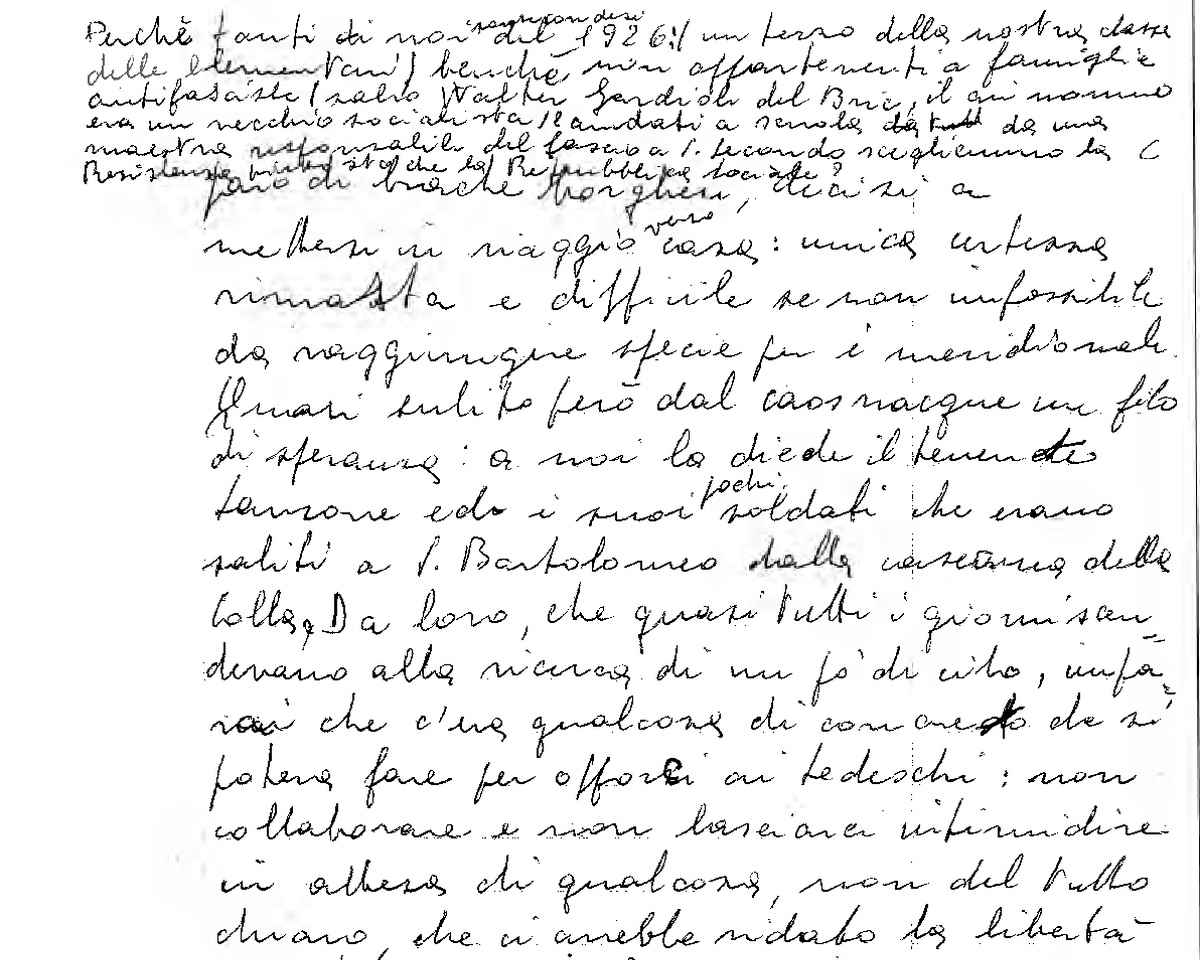 Perchè tanti di noi sansecondesi del 1926 (un terzo della nostra classe
delle Elementari) benchè non appartenenti a famiglie
antifasciste (salvo Walter Gardiol del Bric, il cui nonno
era un vecchio socialista) e andati a scuola da una
maestra responsabile del fascio a S. Secondo scegliemmo la
Resistenza che la Repubblica sociale?
paio di brache borghesi, decisi a
mettersi in viaggio verso casa: unica certezza
rimasta e difficile se non impossibile
da raggiungere specie per i meridionali.
Quasi subito però dal caos nacque un filo
di speranza: a noi la diede il tenente
Lanzone ed i suoi pochi soldati che erano
saliti a S. Bartolomeo dalla caserma della
Colla. Da loro, che quasi tutti i giorni scen=
devano alla ricerca di un pò di cibo, impa=
rai che c'era qualcosa di concreto che si
poteva fare per opporci ai tedeschi: non
collaborare e non lasciarci intimidire
in attesa di qualcosa, non del tutto
chiaro, che ci avrebbe ridato la libertà